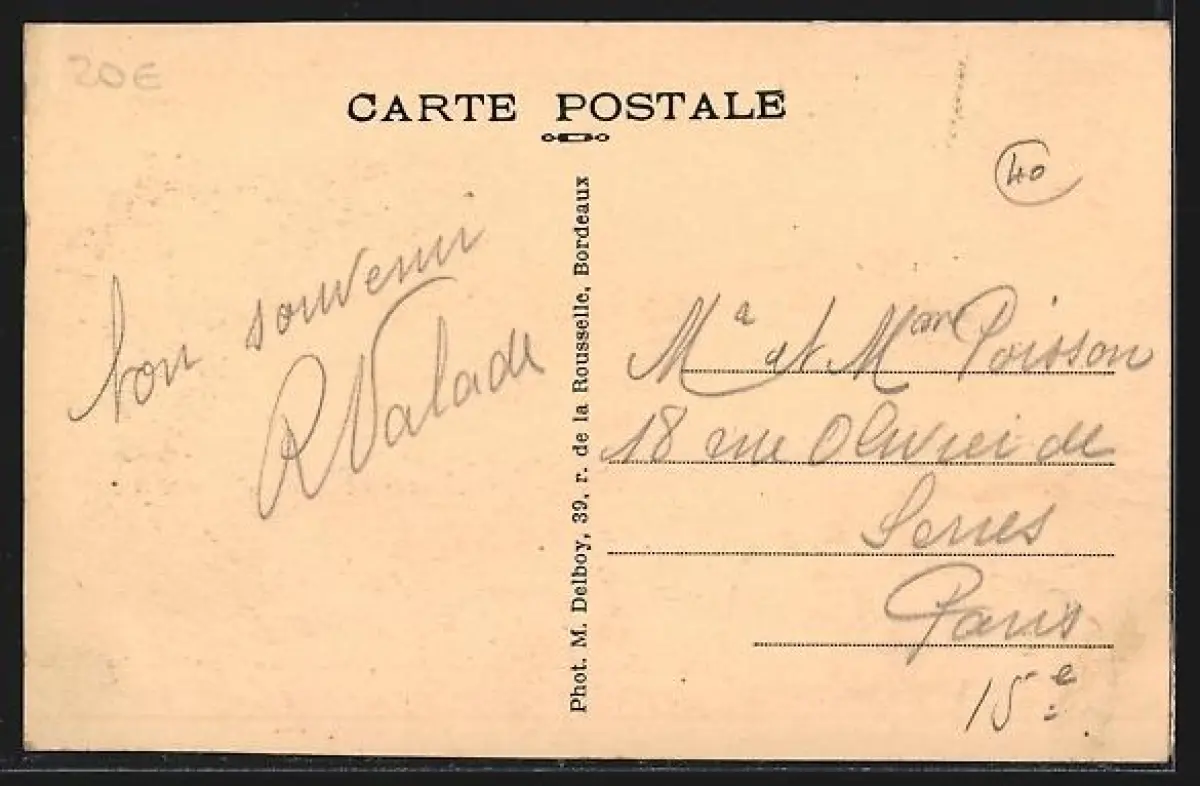 20€
CARTE POSTALE
40
bon souvenir
RValade
Phot. M. Delboy, 39, r. de la Rousselle, Bordeaux
et Mam Poisson
18 rue Olivier de
Serres
Paris
15e